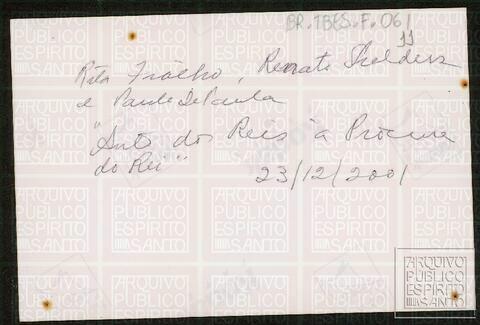 BR.TBES.F.061
11
Rita Fialho, Renato
e Paulo DePaula
"Auto dos Reis à Procura
do Rei"
23/12/2001
ARQUIVO
PÚBLICO
ESPÍRITO
SANTO